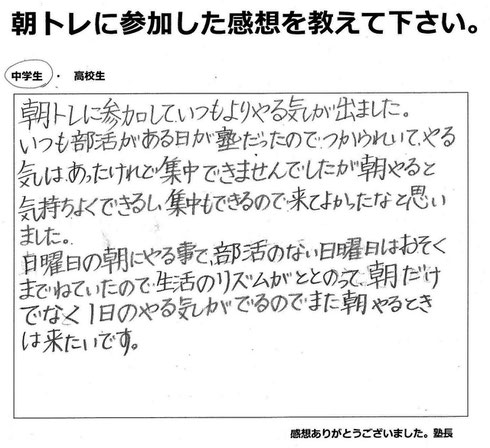 朝トレに参加した感想を教えて下さい。
中学生 ・ 高校生
朝トレに参加していつもよりやる気しが出ました。
いつも部活がある日が塾だったのでつかられいて、やる
気しは、あったけれど集中できませんでしたが朝やると
気持ちよくできるし、集中もできるので来てよかったなと思い
ました。
日曜日の朝にやる事で、部活のない日曜日はおそく
までねていたので生活のリズムがととのって、朝だけ
でなく1日のやる気しがでるのでまた朝やるとき
は来たいです。
感想ありがとうございました。塾長